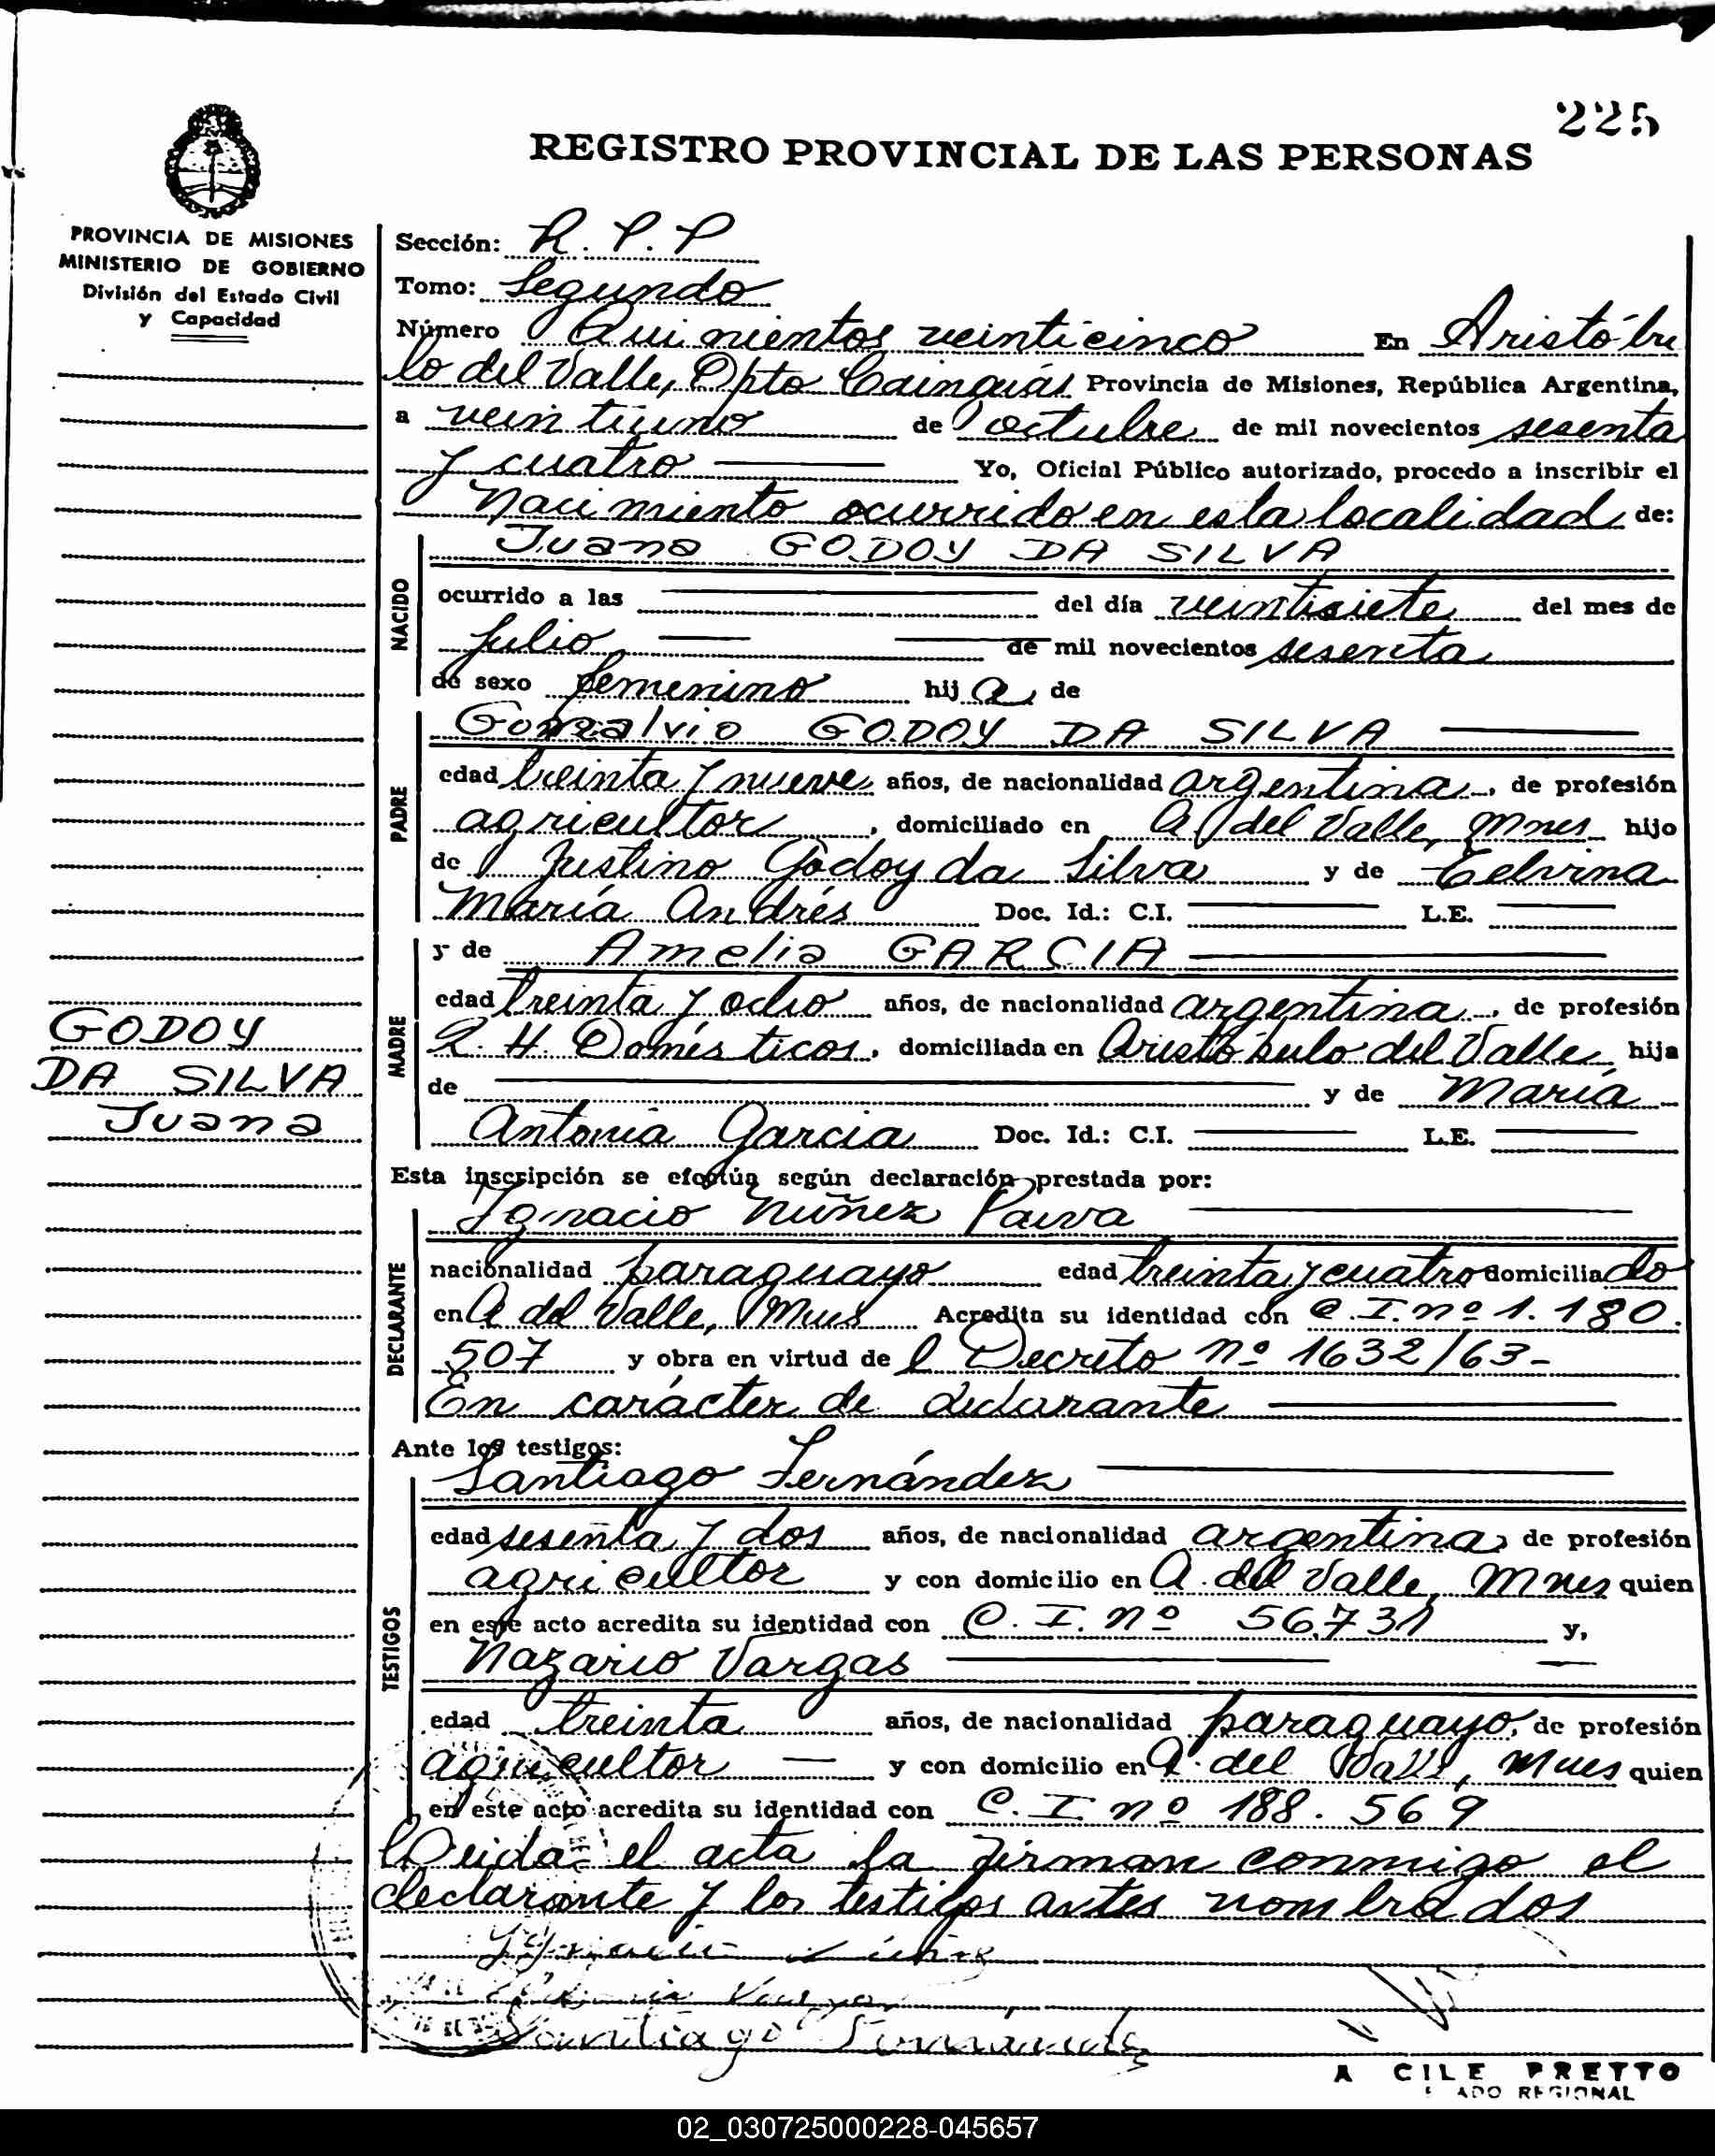 225
REGISTRO PROVINCIAL DE LAS PERSONAS
PROVINCIA DE MISIONES
MINISTERIO DE GOBIERNO
División del Estado Civil
y Capacidad
GODOY
DA SILVA
Juana
Sección: R. P. P
Tomo: Segundo
Número Quinientos veinticinco En Aristóbu
lo del Valle, Dpto Cainguás Provincia de Misiones, República Argentina,
a veintiuno de octubre de mil novecientos sesenta
y cuatro Yo, Oficial Público autorizado, procedo a inscribir el
Nacimiento ocurrido en esta localidad de:
Juana GODOY DA SILVA
NACIDO
ocurrido a las del día veintisiete del mes de
Julio de mil novecientos sesenta
de sexo femenino hija de
Gonzalvio GODOY DA SILVA
PADRE
edad treinta y nueve años, de nacionalidad argentina, de profesión
agricultor, domiciliado en A del Valle, Mnes hijo
de Justino Godoy da Silva y de Celvina
María Andrés Doc. Id.: C.I. L.E.
y de Amelia GARCIA
MADRE
edad treinta y ocho años, de nacionalidad argentina, de profesión
Q. H. Domésticos, domiciliada en Aristóbulo del Valle hija
de y de María
Antonia Garcia Doc. Id.: C.I. L.E.
Esta inscripción se efectúa según declaración prestada por:
Ignacio Núñez Paiva
DECLARANTE
nacionalidad paraguayo edad treinta y cuatro domiciliado
en A del Valle, Mnes Acredita su identidad con C.I. nº 1.180.
507 y obra en virtud del Decreto nº 1632/63-
En carácter de declarante
Ante los testigos:
Santiago Fernández
TESTIGOS
edad sesenta y dos años, de nacionalidad argentina, de profesión
agricultor y con domicilio en A. del Valle, Mnes quien
en este acto acredita su identidad con C. I. nº 56.731 y,
Nazario Vargas
edad treinta años, de nacionalidad paraguayo, de profesión
agricultor y con domicilio en A. del Valle, Mnes quien
en este acto acredita su identidad con C. I. nº 188.569
Leida el acta la firman conmigo el
declarante y los testigos antes nombrados
Santiago Fernandez
A CILE PRETTO
ADO REGIONAL
02_030725000228-045657